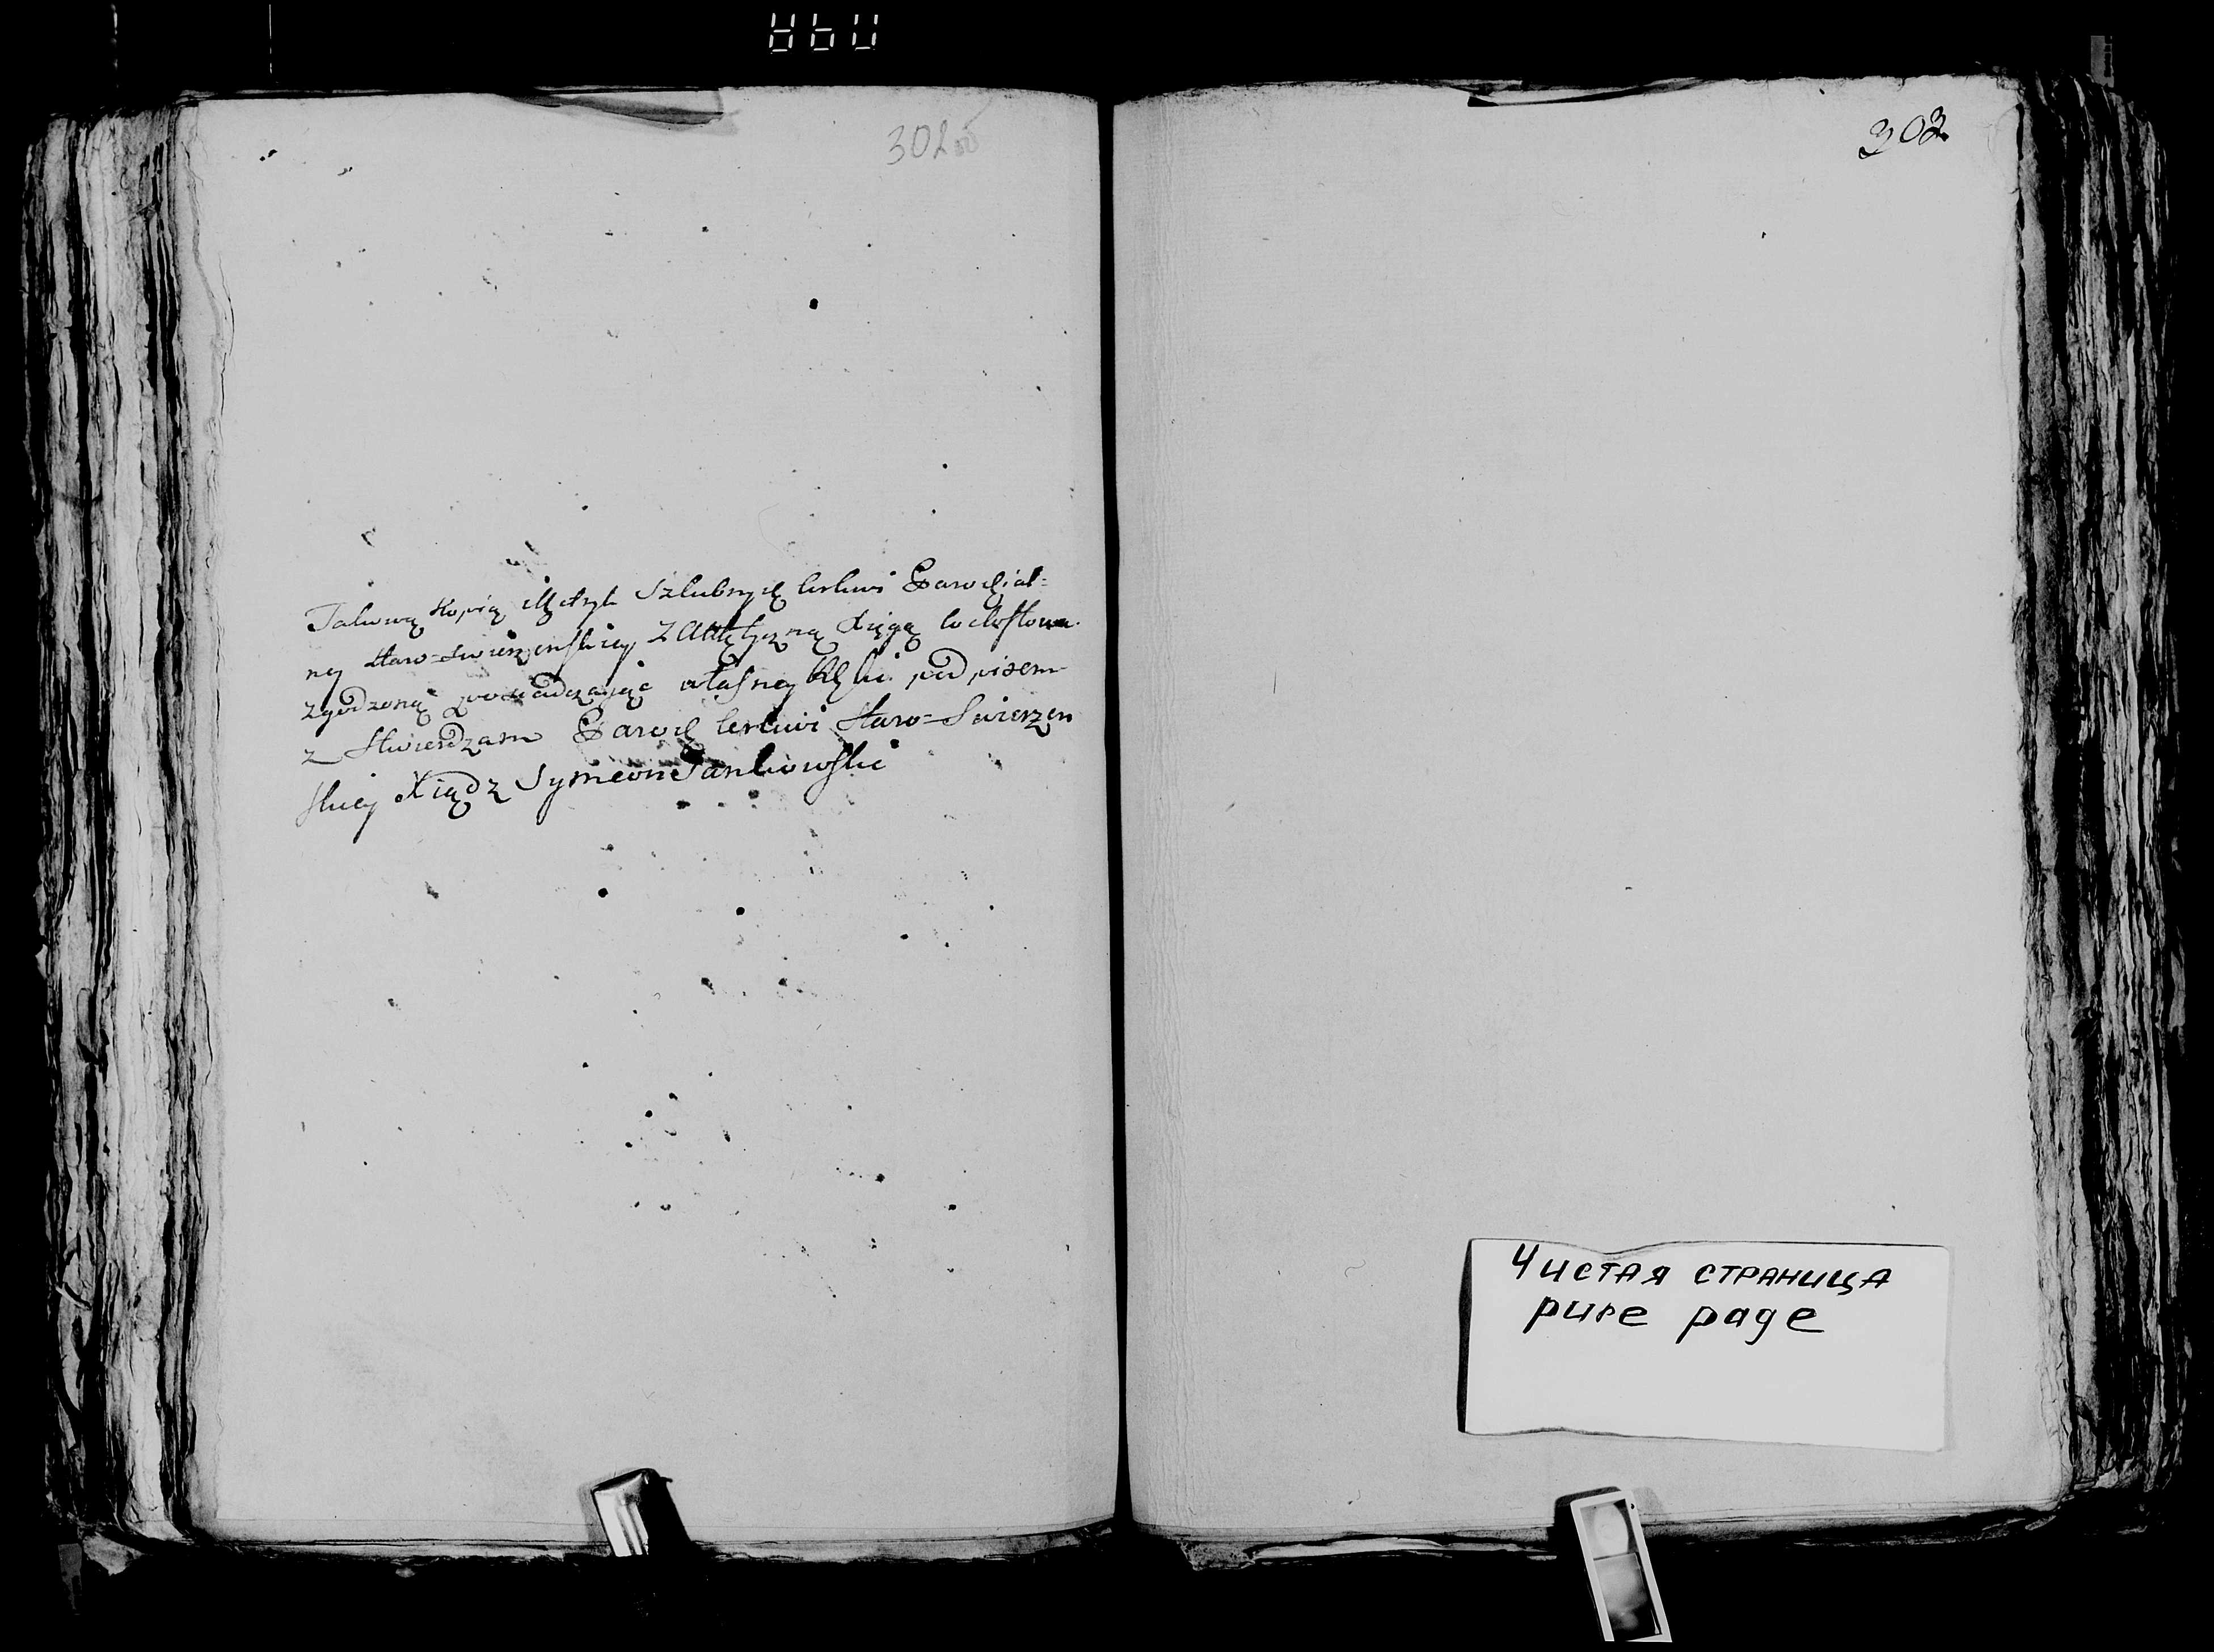 302 об
Takową Kopią Metryk Szlubnych Cerkwi Parochial=
ney Staro=Swierzenskiey z Autętyczną Xięgą co do słowa
zgodzoną poswiadczając własney Ręki podpisem
z Stwierdzam Paroch Cerkwi Staro=Swierzen
skiey Xiądz Symeon Jankowski
303
Чистая страница
pure page